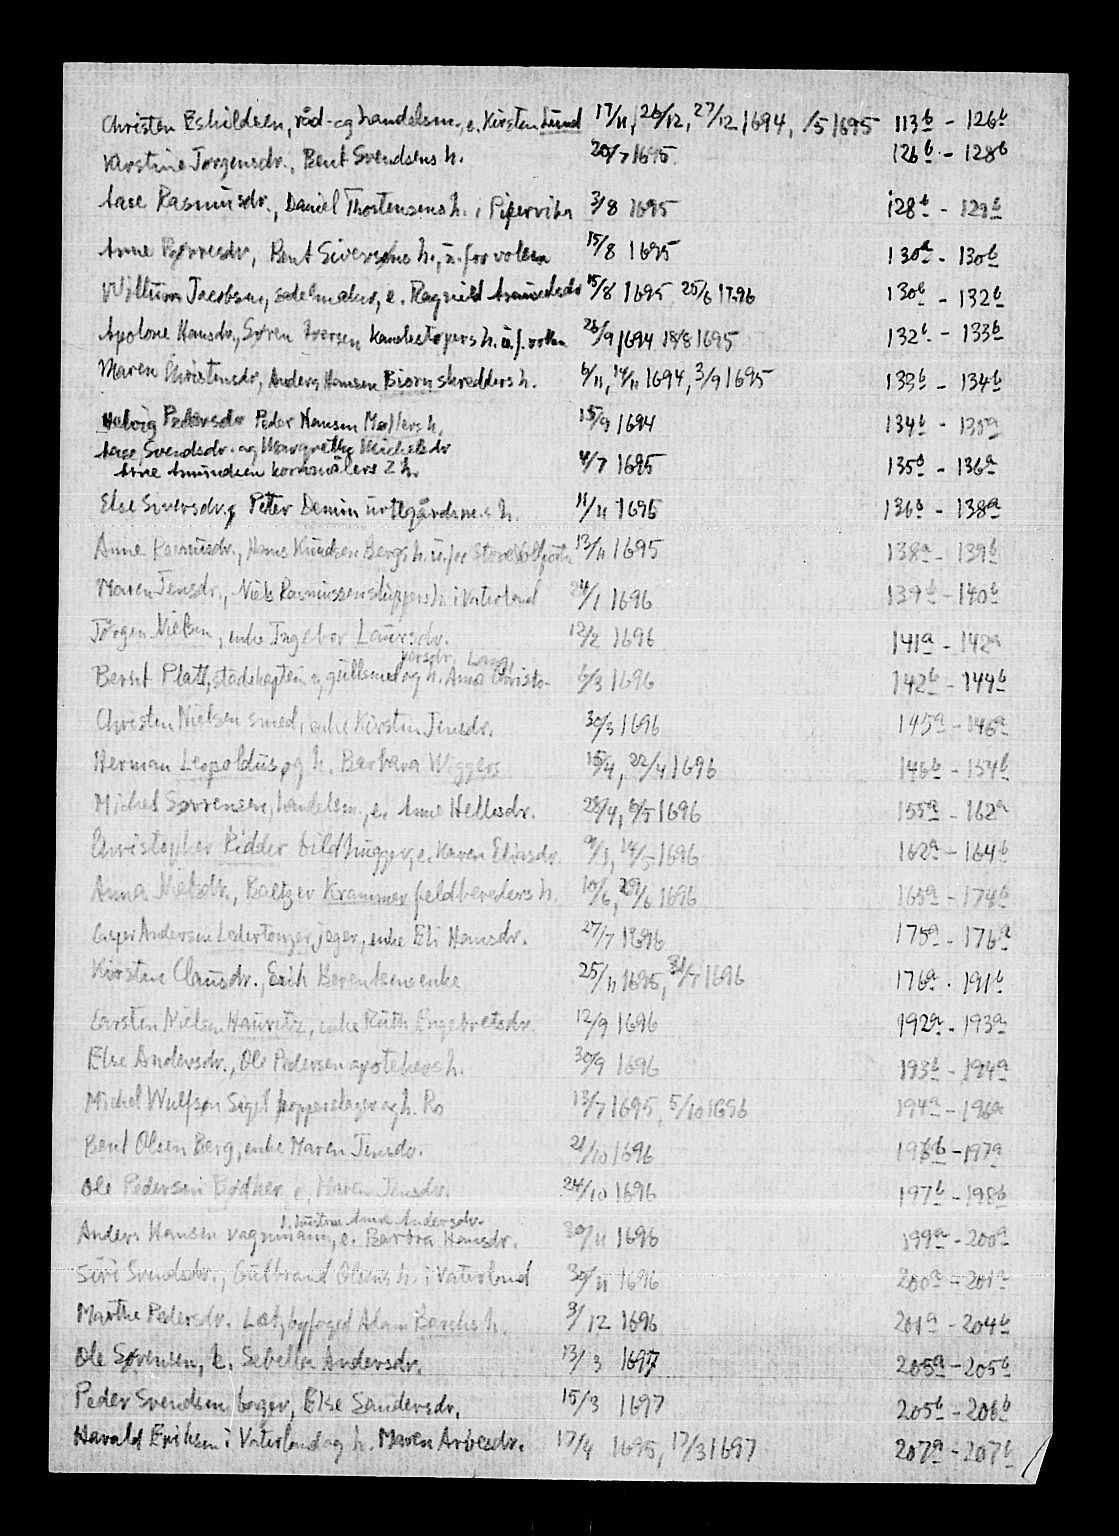 Christen Eskildsen, råd- og handelsm., e. Kirsten Lund 17/11, 26/12, 27/12 1694, /5 1695 113b - 126b
Karstine Jørgensdr., Bent Svendsens h. 20/7 1695 126b - 128b
Aase Rasmusdr., Daniel Thostensens h. i Pipervika 3/8 1695 128b - 129b
Anne Børresdr, Bent Siversens h., u. for volden 15/8 1695 130a - 130b
Willum Jacobsen, sadelmaker, e. Ragnild Amundsdr 15/8 1695 25/6 1696 130b - 132b
Apolone Hansdr., Søren Iversen kandestøpers h. u. f. volden 26/9 1694 18/8 1695 132b - 133b
Maren Christensdr, Anders Hansen Biørn skredders h. 6/11, 14/11 1694, 3/9 1695 133b - 134b
Helvig Pedersdr Peder Hansen Møllers h. 15/9 1694 134b - 135a
Aase Svendsdr. og Margrethe Michelsdr
Arne Amundsen kornmålers 2 h. 4/7 1695 135b - 136a
Else Siversdr., Peter Demin urtegårdsm.s h. 11/11 1695 136b - 138a
Anne Rasmusdr., Hans Knudsen Bergs h. u. for 13/11 1695 138a - 139b
Maren Jensdr., Niels Rasmussen skippers h. i Vaterland 24/1 1696 139b - 140b
Jørgen Nielsen, enke Ingebor Laursdr. 12/2 1696 141a - 142a
Bernt Platt, stadskaptein og gullsmed og h. Anna Christo-
persdr. Lang 6/3 1696 142b - 144b
Christen Nielsen smed, enke Kirsten Jensdr. 30/3 1696 145a - 146a
Herman Leopoldus og h. Barbara Wiggers 15/4, 22/4 1696 146b - 154b
Michel Sørrensen, handelsm., e. Anne Hellesdr. 28/4, 6/5 1696 155a - 162a
Christopher Ridder bildhugger, e. Karen Eliasdr. 9/1, 14/5 1696 162a - 164b
Anna Nielsdr., Baltzer Krammer feldbereders h. 10/6, 29/6 1696 165a - 174b
Casper Andersen Ledertouger jeger, enke Eli Hansdr. 27/7 1696 175a - 176a
Kirstine Clausdr., Erik Berentsens enke 25/11 1695, 31/7 1696 176a - 191b
Carsten Nielsen Hauritz, enke Ruth Engebretsdr. 12/9 1696 192a - 193a
Else Andersdr., Ole Pedersen apotekers h. 30/9 1696 193b - 194a
Michel Wulfson Sigel kopperslager og h. Ro 13/7 1695, 5/10 1696 194a - 196a
Bent Olsen Berg, enke Maren Jensdr. 21/10 1696 196b - 197a
Ole Pedersen Bødker, e. Maren Jensdr. 24/10 1696 197b - 198b
1. hustru Anne Andersdr.
Anders Hansen vognmann, e. Barbra Hansdr. 30/11 1696 199a - 200a
Siri Svendsdr., Gulbrand Olsens h. i Vaterland 30/11 1696 200a - 201a
Marthe Pedersdr. Løt, byfoged Adam Barchs h. 3/12 1696 201a - 204b
Ole Sørensen, h. Sebella Andersdr. 13/3 1697 205a - 205b
Peder Svendsen borger, Else Sandersdr. 15/3 1697 205b - 206b
Harald Eriksen i Vaterland og h. Maren Arbesdr. 17/4 1695, 17/3 1697 207a - 207b